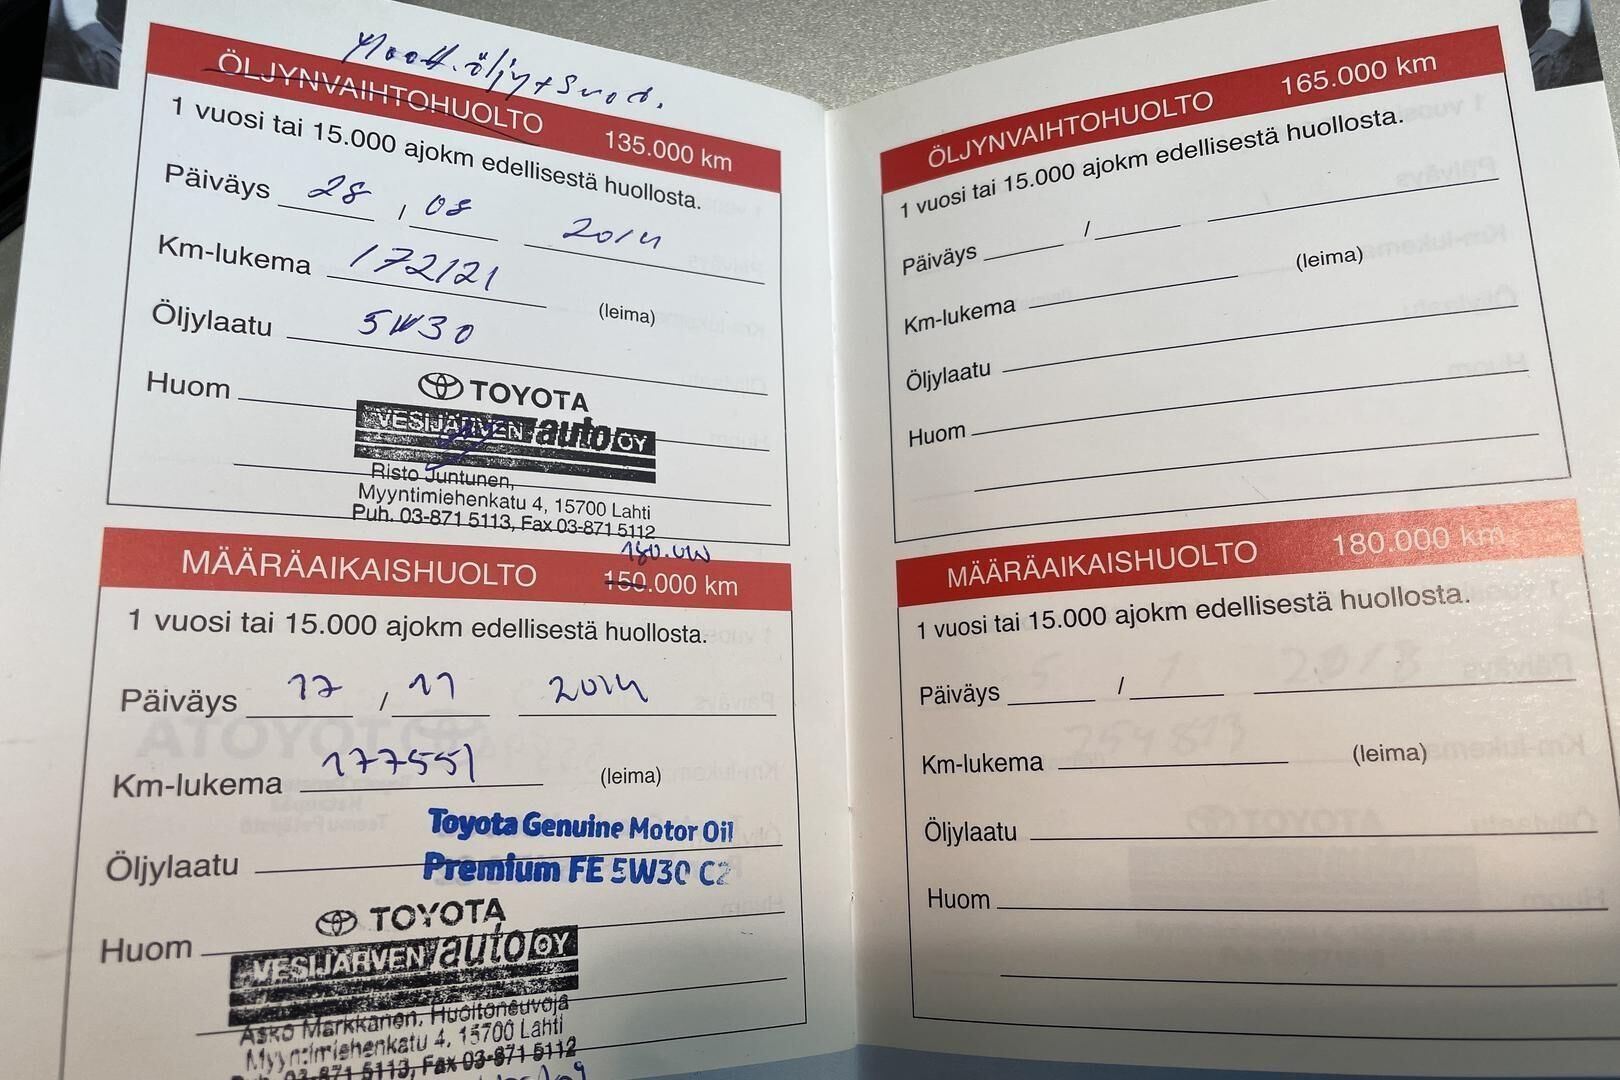 Moott.öljy+Suod.
ÖLJYNVAIHTOHUOLTO 135.000 km
1 vuosi tai 15.000 ajokm edellisestä huollosta.
Päiväys 28 / 08 2014
Km-lukema 172121 (leima)
Öljylaatu 5W30
Huom TOYOTA
VESIJÄRVEN auto OY
Risto Juntunen,
Myyntimiehenkatu 4, 15700 Lahti
Puh. 03-871 5113, Fax 03-871 5112
180.000
MÄÄRÄAIKAISHUOLTO 150.000 km
1 vuosi tai 15.000 ajokm edellisestä huollosta.
Päiväys 17 / 11 2014
Km-lukema 177551 (leima)
Toyota Genuine Motor Oil
Öljylaatu Premium FE 5W30 C2
TOYOTA
Huom VESIJÄRVEN auto OY
Asko Markkanen, Huoltoneuvoja
Myyntimiehenkatu 4, 15700 Lahti
Puh. 03-871 5113, Fax 03-871 5112
ÖLJYNVAIHTOHUOLTO 165.000 km
1 vuosi tai 15.000 ajokm edellisestä huollosta.
Päiväys /
Km-lukema (leima)
Öljylaatu
Huom
MÄÄRÄAIKAISHUOLTO 180.000 km
1 vuosi tai 15.000 ajokm edellisestä huollosta.
Päiväys /
Km-lukema (leima)
Öljylaatu
Huom